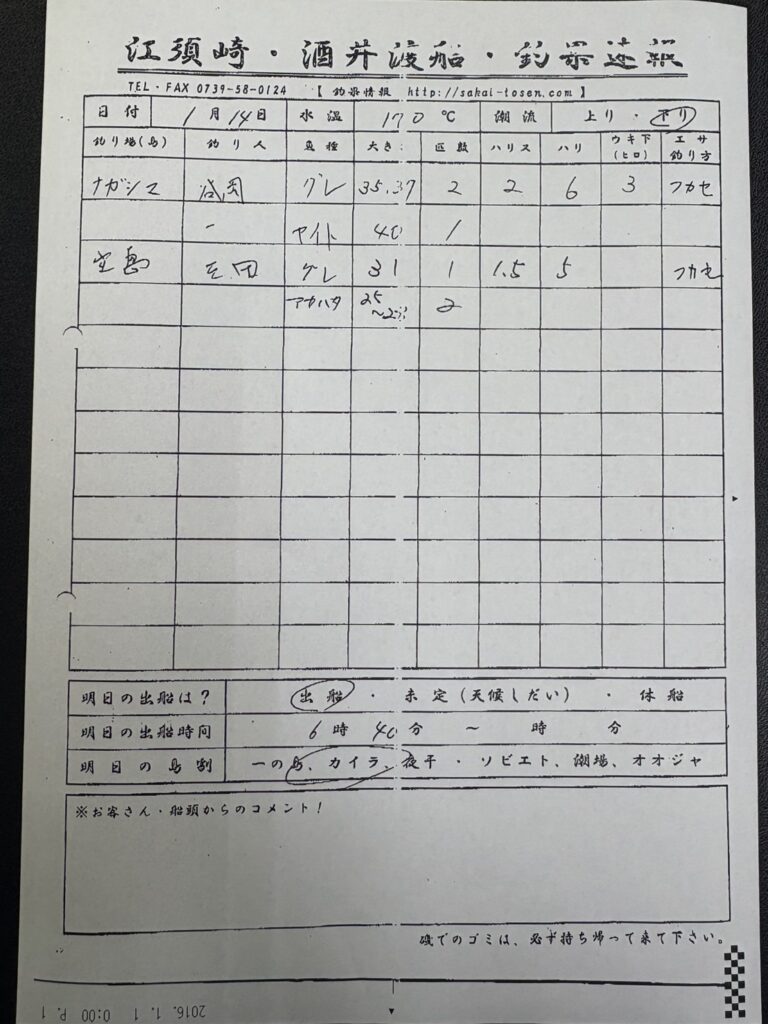 江須崎・酒井渡船・釣果速報
TEL・FAX 0739-58-0124 【 釣果情報 http://sakai-tosen.com 】
日付 1月14日 水温 170 ℃ 潮流 上り・下り
釣り場(島) 釣り人 魚種 大き 匹数 ハリス ハリ ウキ下(ヒロ) エサ釣り方
ナガシマ 盛岡 グレ 35.37 2 2 6 3 フカセ
〃 アイト 40 1
田 グレ 31 1 1.5 5 フカセ
アカハタ 25 2
明日の出船は? 出船 ・ 未定(天候しだい) ・ 休船
明日の出船時間 6時40分 〜 時 分
明日の島割 一の島、カイラ、夜干・ソビエト、潮場、オオジャ
※お客さん・船頭からのコメント!
磯でのゴミは、必ず持ち帰って来て下さい。
2016. 1. 1 0:00 P. 1